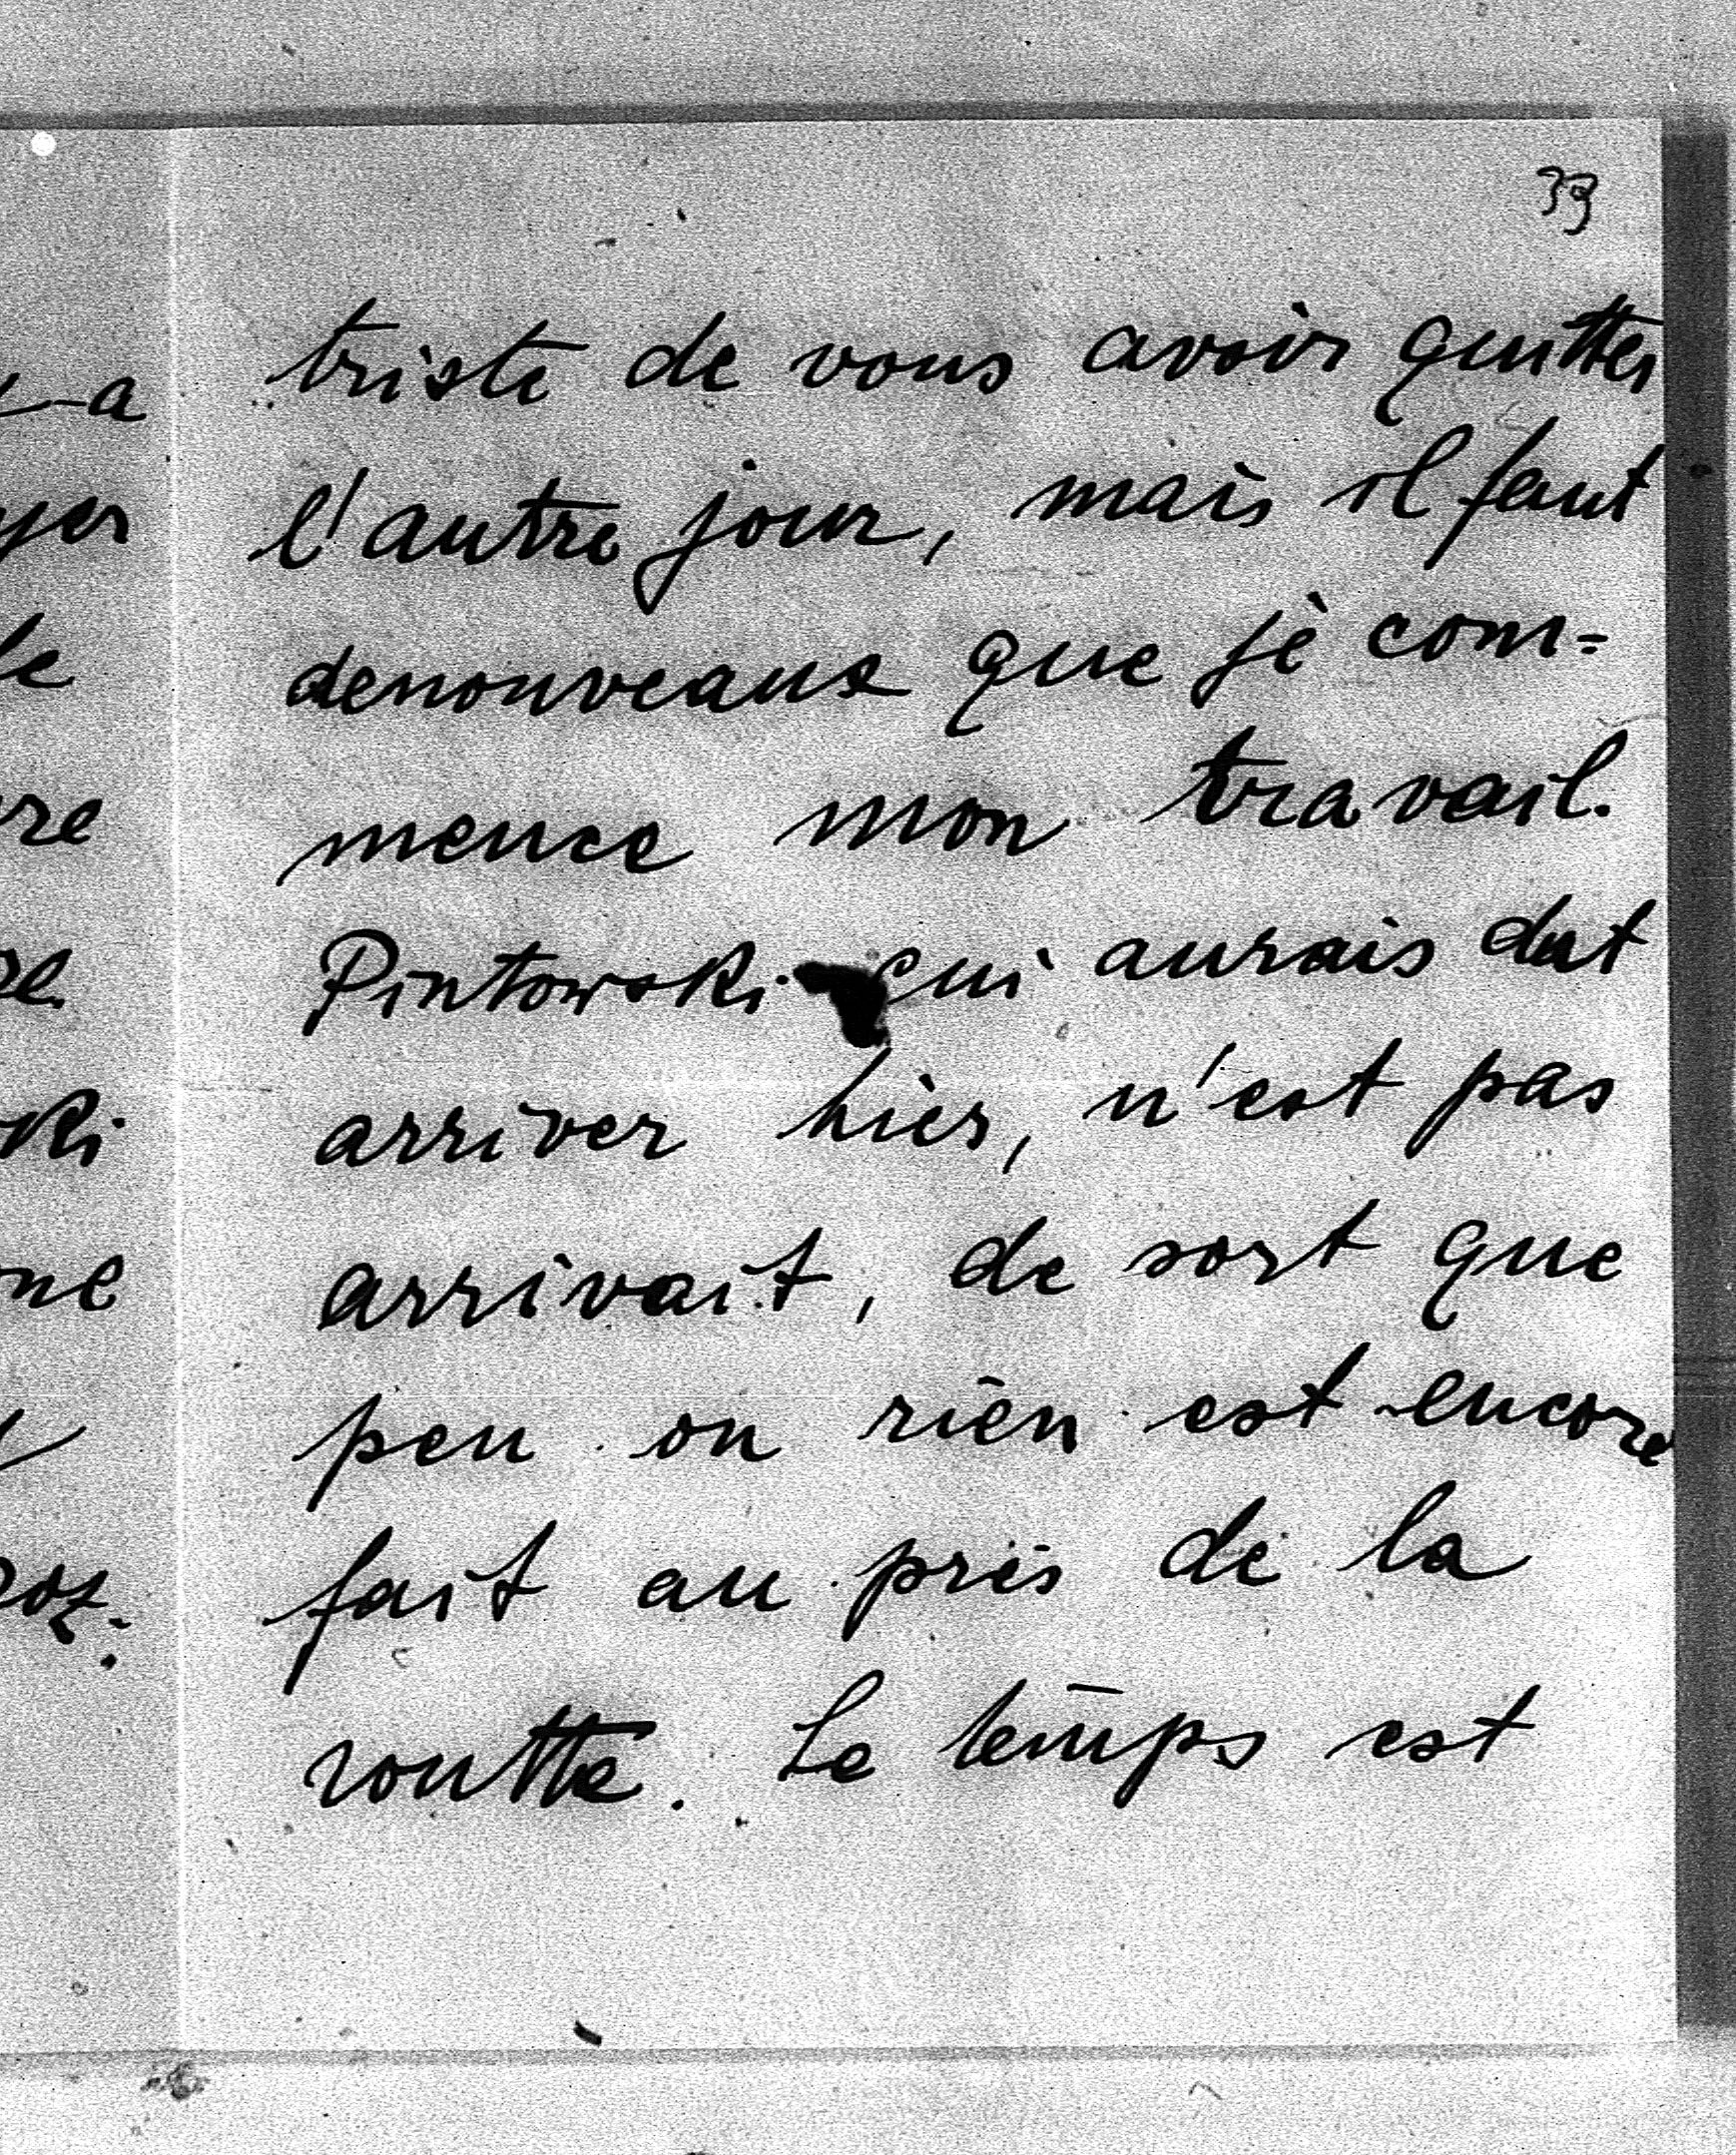 39
triste de vous avoir quitter
l'autre jour, mais il faut
denouveaux que je com=
mence mon travail.
Pintowski qui aurais dut
arriver hièr, n'est pas
arrivait, de sort que
peu ou rien est encore
fait au près de la
routte. Le temps est